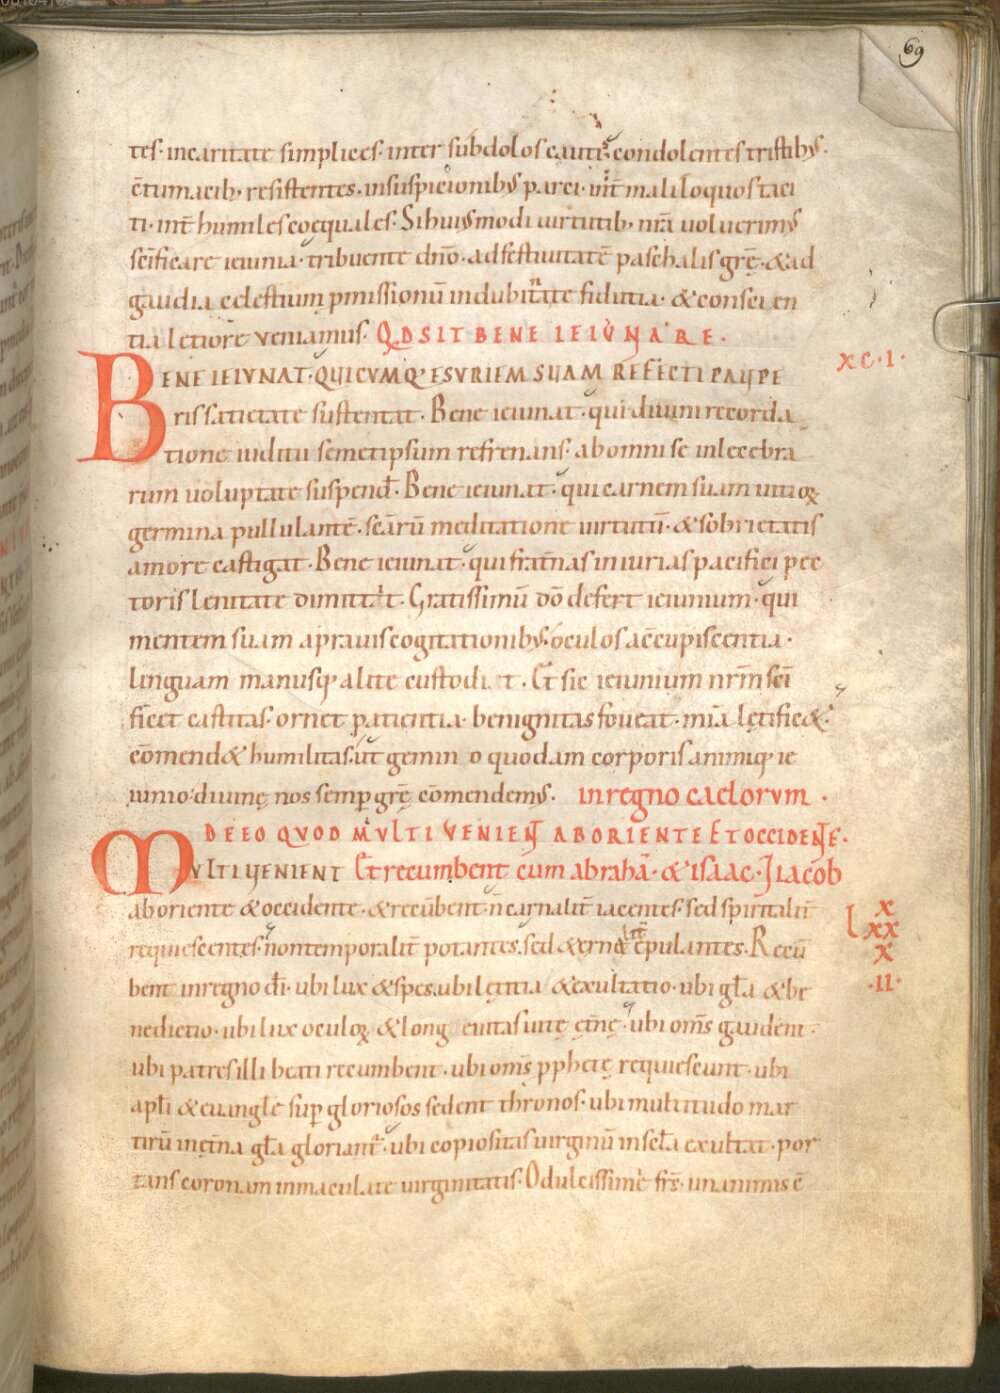 69
tes· incaritate simplices· inter subdolos cauti· condolentes tristibꝰ·
c̄tumacib; resistentes· insuspicionibꝰ parci· int̄ maliloquos taci
ti· int̄ humiles coequales· Sihuiꝰmodi uirtutib; nr̄a uoluerimꝰ
sc̄ificare ieiunia· tribuente dnō· adfestiuitatē paschalis gr̄ę· &ad
gaudia celestium p̄missionū indubitante fidutia· &conscien
tia letiore veniamus· QD SIT BENE IEIUNARE·
BENE IEIUNAT· QUICUMQ; ESURIEM SUAM REFECTI PAUPE
XC·I·
ris satietate sustentat· Bene ieiunat· qui diuini recorda
tione iuditii semetipsum refrenans· abomni se inlecebra
rum uoluptate suspend̄· Bene ieiunat· qui carnem suam uitioꝝ
germina pullulantē· sc̄arū meditatione uirtutū· &sobrietatis
amore castigat· Bene ieiunat· qui frat̄nas iniurias pacifici pec
toris lenitate dimittit· Gratissimū dō defert ieiunium· qui
mentem suam aprauis cogitationibꝰ· oculos ac̄cupiscentia·
linguam manusq; alite custodi t· Et sic ieiunium nr̄m sc̄i
ficet castitas· ornet patientia· benignitas foueat· mīa lętific&·
cōmend& humilitas· ut gemin o quodam corporis animiq; ie
iunio· diuinę nos semp gr̄ę cōmendemꝰ· in regno caelorum ·
DE EO QUOD MULTI VENIENT AB ORIENTE ET OCCIDENTE·
MULTI UENIENT Et recumbent cum abrahā· & isaac· Jiacob
aboriente &occidente· &recūbent· n̄ carnalit̄ iacentes· sed spiritalit̄
X
requiescentes· nontemporalit̄ potantes· sed &ern& epulantes· Recū
LXX
X
bent inregno dī· ubi lux &spes· ubi lętitia &exultatio· ubi gl̄a &be
·II·
nedictio· ubi lux oculoꝝ &long euitas uitę ęt̄nę· ubi om̄s gaudent·
ubi patres illi beati recumbent· ubi om̄s pphetę requiescunt· ubi
apl̄i &euangl̄e sup gloriosos sedent thronos· ubi multitudo mar
tirū inęt̄na gl̄a gloriant· ubi copiositas uirginū insc̄la exultat· por
tans coronam inmaculate uirginitatis· O dulcissime fr̄s· unanimis ē